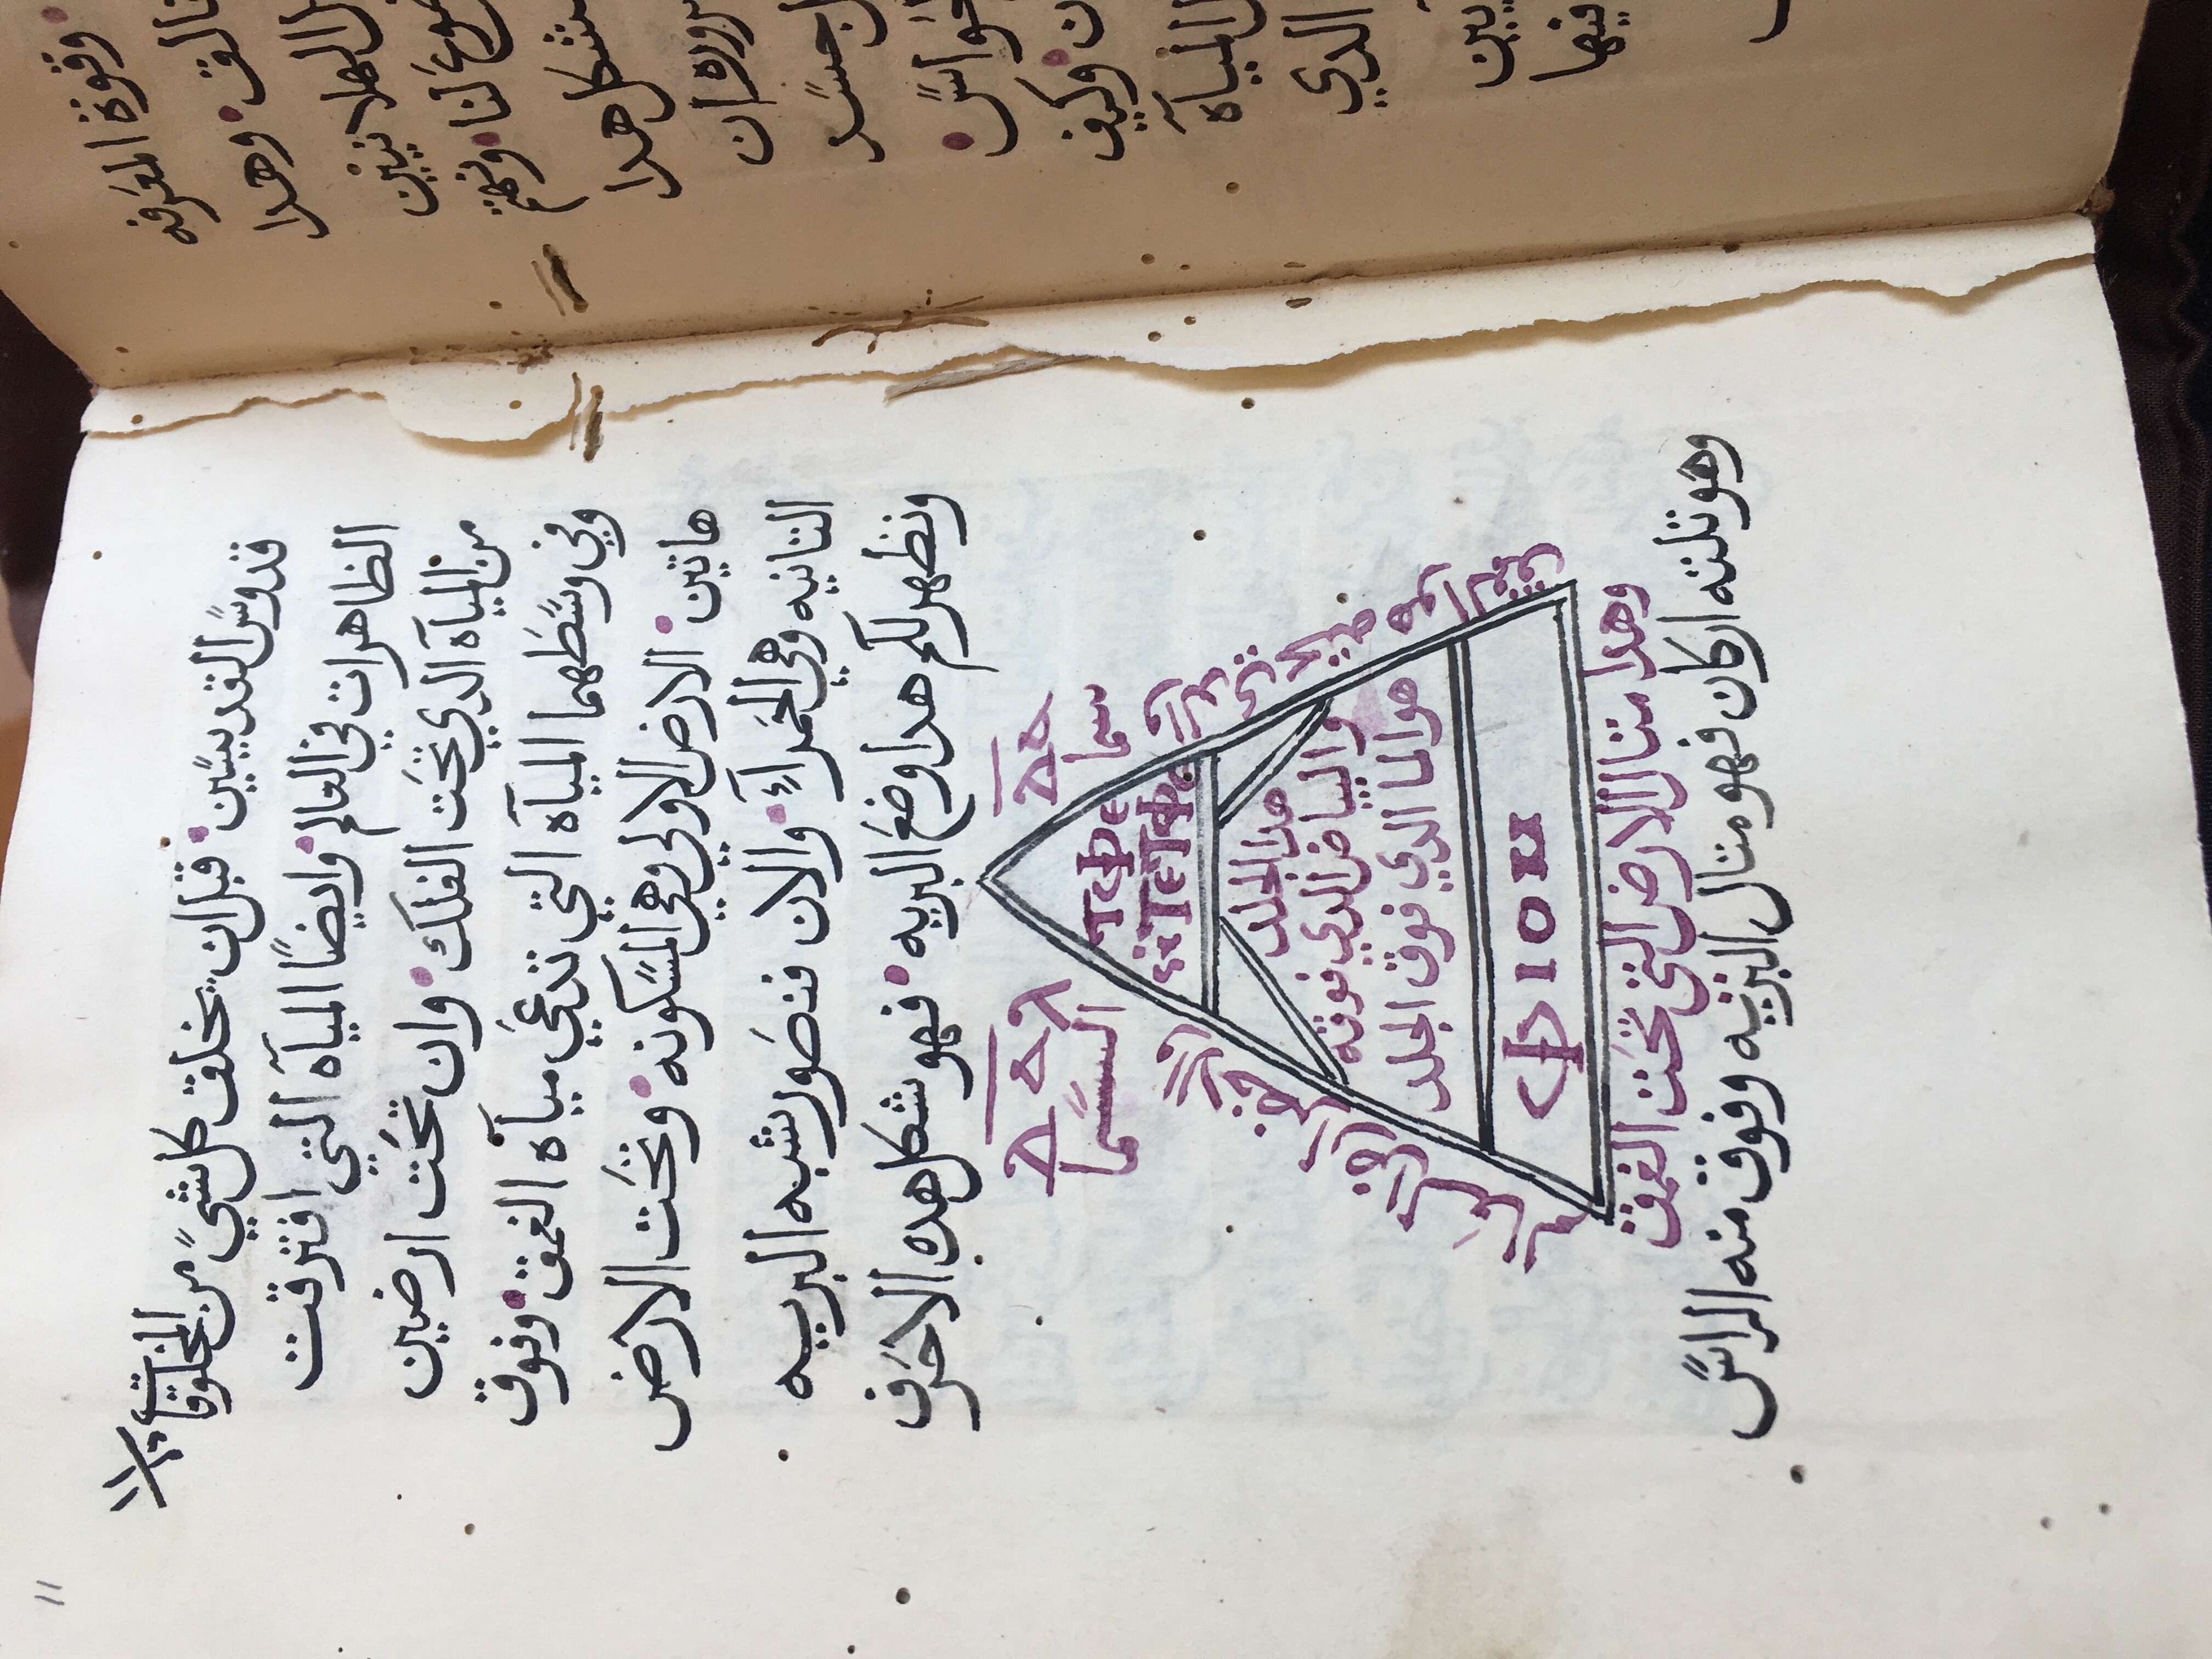 11
١١
قدوس القديسين • قبل ان يخلق كل شي من المخلوقات
الظاهرات في العالم • وايضًا المياه التي افترقت
من المياه الدي تحت الفلك • وان تحت ارضين
وفي وسطهما المياه التي تدعي مياه الغمق • وفوق
هاتين • الارض الاولي وهي المسكونه • وتحت الارض
التانيه وهي الحمرآء • والان فنصور شبه البريه
ونظهر لكم هدا وضع البريه • فهو شكل هده الاحرف
سما
السما
ⲧⲫⲉ
ⲛ̀ⲧⲉⲧⲫⲉ
هدا الجلد
والبياض الدي فوقه
هو الما الدي فوق الجلد
ⲫⲓⲟⲙ
والاخضر ارض العالم
والدي تحته هو الغمق
وهدا متال الارض التي تحت الغمق
وهو تلته اركان فهو متال البريه وفوق منه الراس
وقوة المعرفه
وهدا
لنا • ونهتم
شكل هدا
ان
جسد
• وكيف
المياه
الدي
فيها